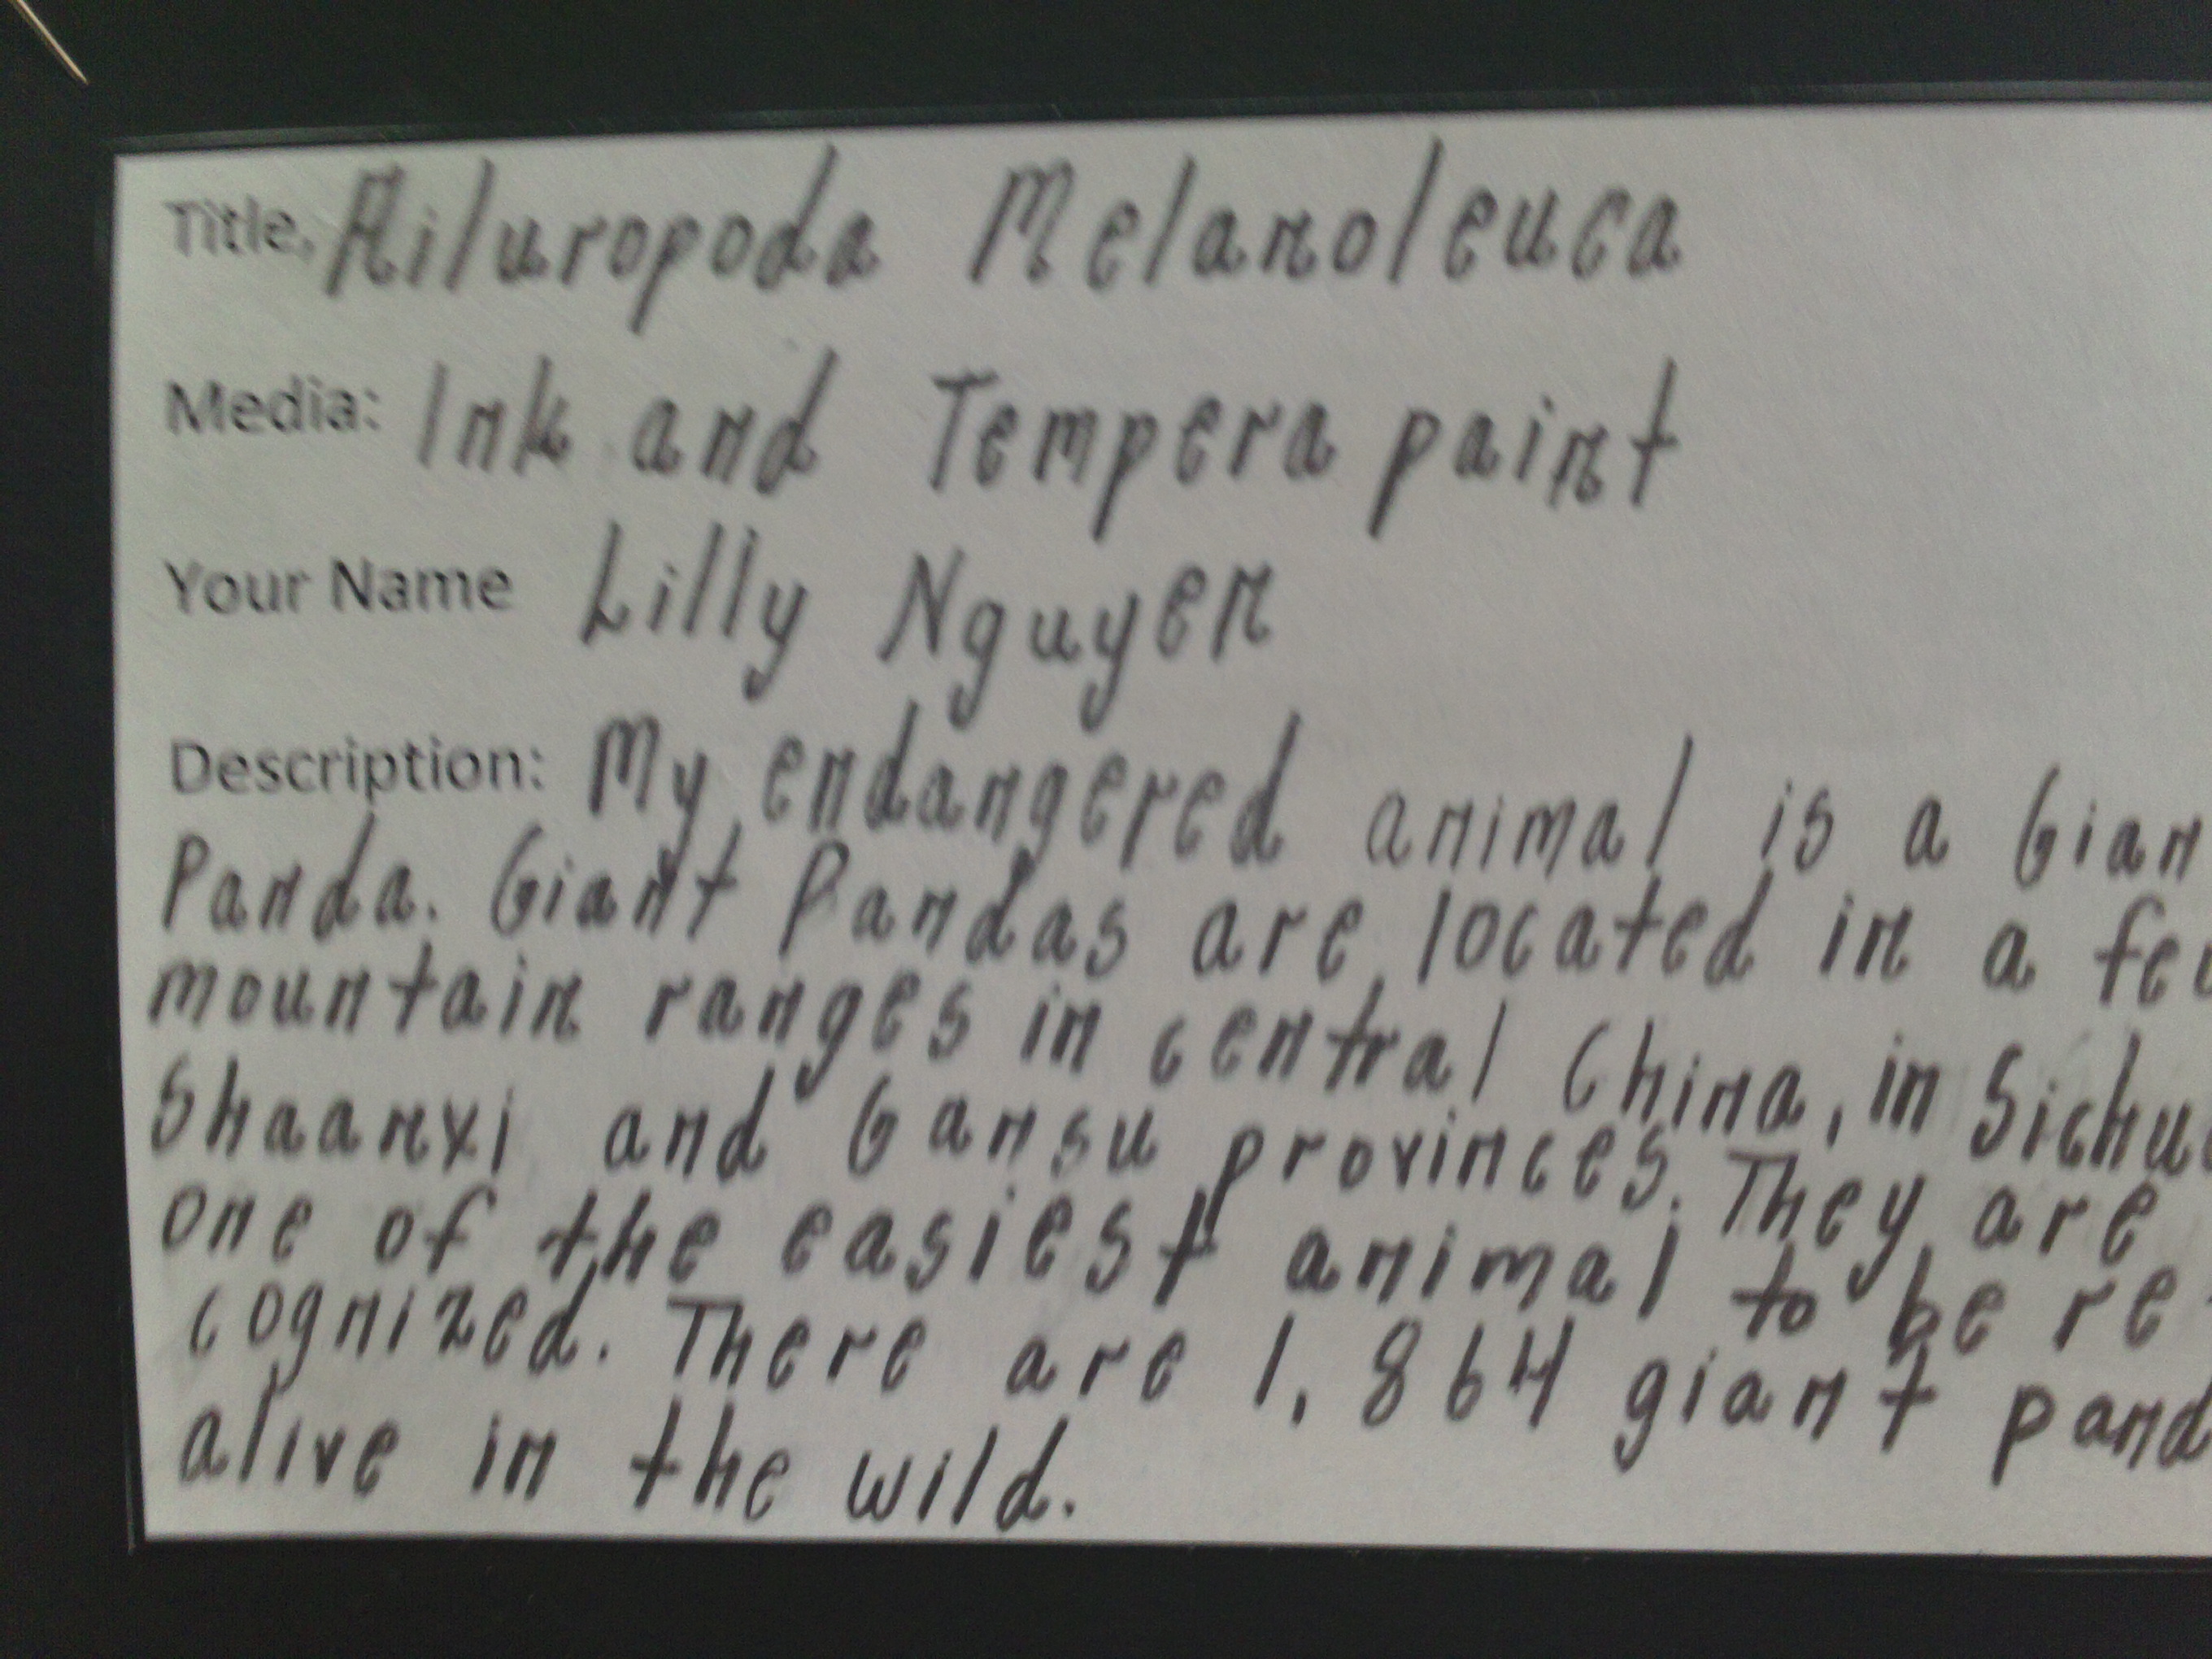 Title. Ailuropoda Melanoleuca
Media: Ink and Tempera paint
Your Name Lilly Nguyen
Description: My endangered animal is a Gian
Panda. Giant Pandas are located in a fe
mountain ranges in central China, in Sichu
Shaanxi and Gansu provinces. They are
one of the easiest animal to be re-
cognized. There are 1,864 giant pand
alive in the wild.